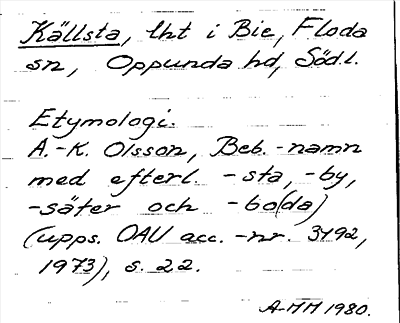 Källsta, lht i Bie, Floda
sn, Oppunda hd, Södl.
Etymologi.
A.-K. Olsson, Beb.-namn
med efterl. -sta, -by,
-säter och -bo(da)
(upps. OAU acc.-nr. 3492,
1973), s. 22.
A-MH 1980.